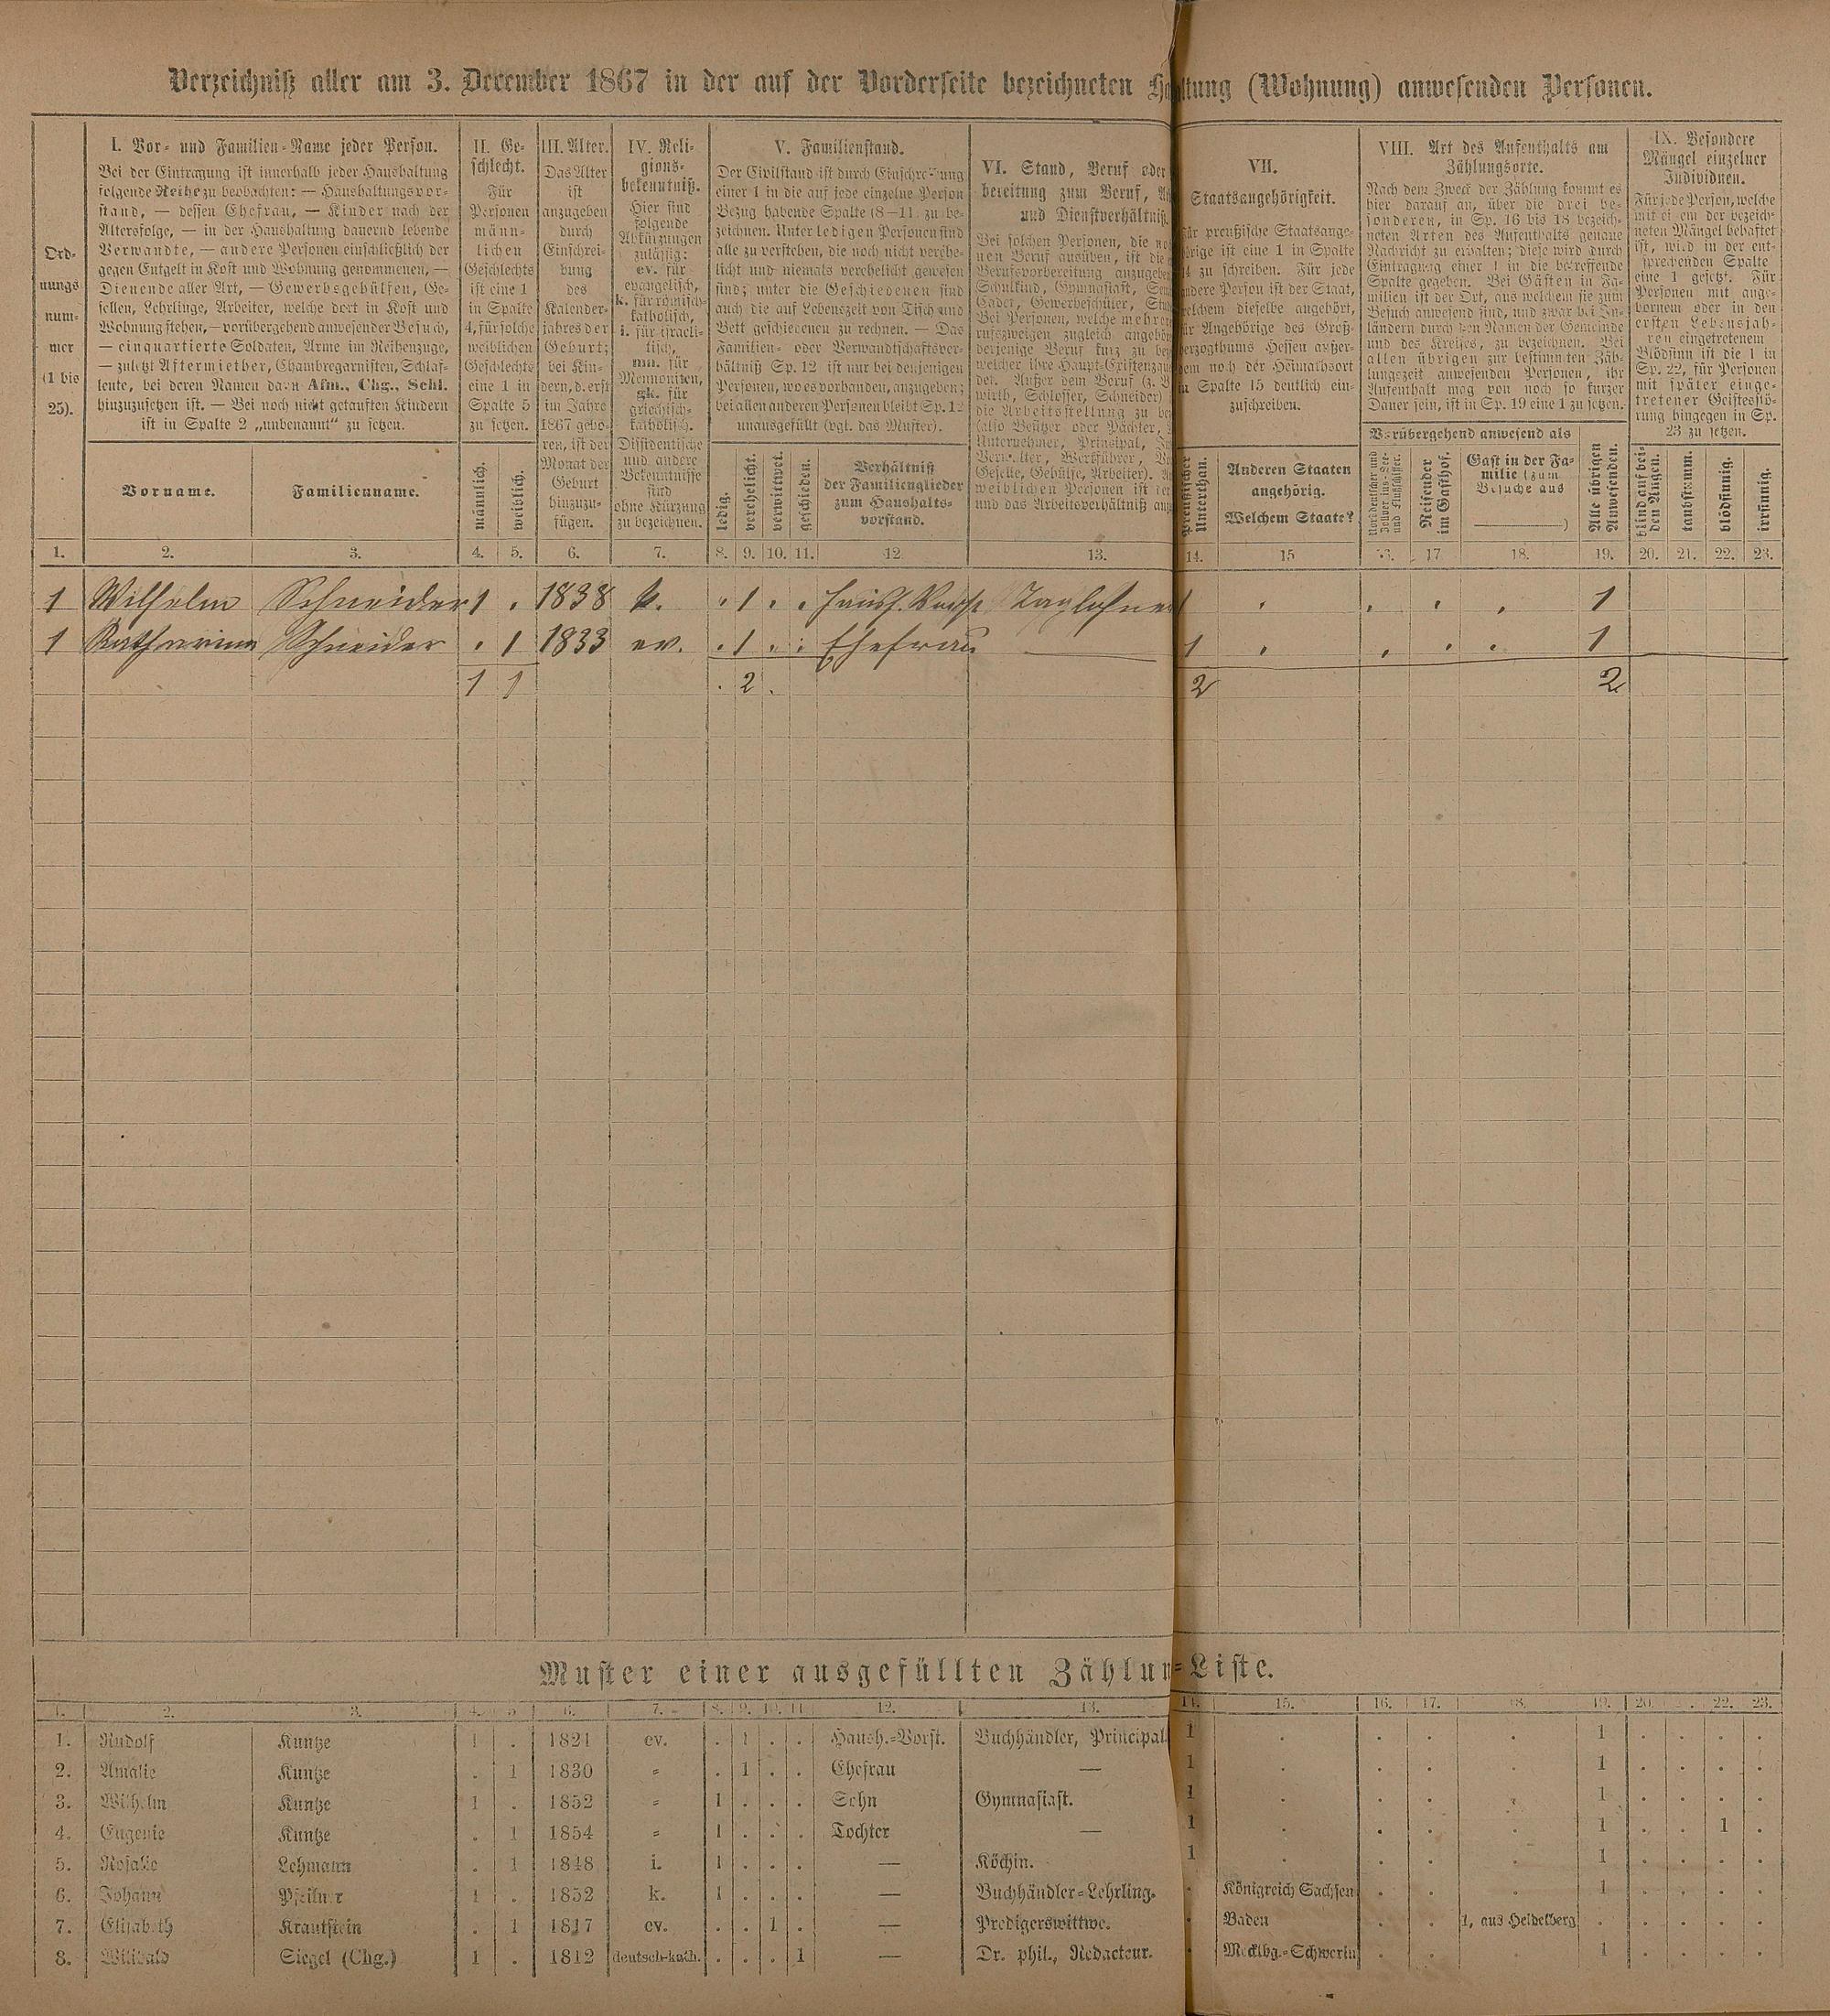 Verzeichniß aller am 3. December 1867 in der auf der Vorderseite bezeichneten Ha ltung (Wohnung) anwesenden Personen.
Ord-
nungs
num-
mer
(1 bis
25).
I. Vor- und Familien-Name jeder Person.
Bei der Eintragung ist innerhalb jeder Haushaltung
folgende Reihe zu beobachten: — Haushaltungsvor-
stand, — dessen Ehefrau, — Kinder nach der
Altersfolge, — in der Haushaltung dauernd lebende
Verwandte, — andere Personen einschließlich der
gegen Entgelt in Kost und Wohnung genommenen, —
Dienende aller Art, — Gewerbsgehülfen, Ge-
sellen, Lehrlinge, Arbeiter, welche dort in Kost und
Wohnung stehen, — vorübergehend anwesender Besuch,
— einquartierte Soldaten, Arme im Reihenzuge,
— zuletzt Aftermiether, Chambregarnisten, Schlaf-
leute, bei deren Namen dann Afm., Chg., Schl.
hinzuzusetzen ist. — Bei noch nicht getauften Kindern
ist in Spalte 2 „unbenannt“ zu setzen.
Vorname.
Familienname.
II. Ge-
schlecht.
Für
Personen
männ-
lichen
Geschlechts
ist eine 1
in Spalte
4, für solche
weiblichen
Geschlechts
eine 1 in
Spalte 5
zu setzen.
männlich.
weiblich.
III. Alter.
Das Alter
ist
anzugeben
durch
Einschrei-
bung
des
Kalender-
jahres der
Geburt;
bei Kin-
dern, d. erst
im Jahre
1867 gebo-
ren, ist der
Monat der
Geburt
hinzuzu-
fügen.
IV. Reli-
gions-
bekenntniß.
Hier sind
folgende
Abkürzungen
zulässig:
ev. für
evangelisch,
k. für römisch-
katholisch,
i. für israeli-
tisch,
mn. für
Mennoniten,
gk. für
griechisch-
katholisch.
Dissidentische
und andere
Bekenntnisse
sind
ohne Kürzung
zu bezeichnen.
V. Familienstand.
Der Civilstand ist durch Einschreibung
einer 1 in die auf jede einzelne Person
Bezug habende Spalte (8—11) zu be-
zeichnen. Unter ledigen Personen sind
alle zu verstehen, die noch nicht verehe-
licht und niemals verehelicht gewesen
sind; unter die Geschiedenen sind
auch die auf Lebenszeit von Tisch und
Bett geschiedenen zu rechnen. — Das
Familien- oder Verwandtschaftsver-
hältniß Sp. 12 ist nur bei denjenigen
Personen, wo es vorhanden, anzugeben;
bei allen anderen Personen bleibt Sp. 12
unausgefüllt (vgl. das Muster).
ledig.
verehelicht.
verwittwet.
geschieden.
Verhältniß
der Familienglieder
zum Haushalts-
vorstand.
VI. Stand, Beruf oder
bereitung zum Beruf,
und Dienstverhältniß.
Bei solchen Personen, die
nen Beruf ausüben, ist die
Berufsvorbereitung anzugeben
Schulkind, Gymnasiast,
Cadet, Gewerbeschüler,
Bei Personen, welche mehren
rufszweigen zugleich angehören
derjenige Beruf kurz zu
welcher ihre Haupt-Existenzquelle
det. Außer dem Beruf (z. B.
wirth, Schlosser, Schneider)
die Arbeitsstellung zu
(also Besitzer oder Pächter,
Unternehmer, Principal,
Verwalter, Werkführer,
Geselle, Gehülfe, Arbeiter).
weiblichen Personen ist
und das Arbeitsverhältniß
VII.
Staatsangehörigkeit.
Für preußische Staatsange-
hörige ist eine 1 in Spalte
14 zu schreiben. Für jede
andere Person ist der Staat,
welchem dieselbe angehört,
für Angehörige des Groß-
herzogthums Hessen außer-
dem noch der Heimathsort
in Spalte 15 deutlich ein-
zuschreiben.
Preußischer
Unterthan.
Anderen Staaten
angehörig.
Welchem Staate?
VIII. Art des Aufenthalts am
Zählungsorte.
Nach dem Zweck der Zählung kommt es
hier darauf an, über die drei be-
sonderen, in Sp. 16 bis 18 bezeich-
neten Arten des Aufenthalts genaue
Nachricht zu erhalten; diese wird durch
Eintragung einer 1 in die betreffende
Spalte gegeben. Bei Gästen in Fa-
milien ist der Ort, aus welchem sie zum
Besuch anwesend sind, und zwar bei In-
ländern durch den Namen der Gemeinde
und des Kreises, zu bezeichnen. Bei
allen übrigen zur bestimmten Zäh-
lungszeit anwesenden Personen, ihr
Aufenthalt mag von noch so kurzer
Dauer sein, ist in Sp. 19 eine 1 zu setzen.
Vorübergehend anwesend als
Reisender
im Gasthof.
Gast in der Fa-
milie (zum
Besuche aus
)
Alle übrigen
Anwesenden.
IX. Besondere
Mängel einzelner
Individuen.
Für jede Person, welche
mit einem der bezeich-
neten Mängel behaftet
ist, wird in der ent-
sprechenden Spalte
eine 1 gesetzt. Für
Personen mit ange-
bornem oder in den
ersten Lebensjah-
ren eingetretenem
Blödsinn ist die 1 in
Sp. 22, für Personen
mit später einge-
tretener Geistesstö-
rung hingegen in Sp.
23 zu setzen.
blind auf bei-
den Augen.
taubstumm.
blödsinnig.
irrsinnig.
1. 2. 3. 4. 5. 6. 7. 8. 9. 10. 11. 12. 13. 14. 15 16. 17. 18. 19. 20. 21. 22. 23.
1 Wilhelm Schneider 1 . 1838 k. . 1 . . Haush. Vorst Taglohner 1 . . . . 1
1 Katharina Schneider . 1 1833 ev. . 1 . . Ehefrau — 1 . . . . 1
1 1 . 2 . 2 2
Muster einer ausgefüllten Zählun-Liste.
1. 2. 3. 4. 5. 6. 7. 8. 9. 10. 11. 12. 13. 14. 15. 16. 17. 18. 19. 20. 22. 23.
1. Rudolf Kuntze 1 . 1821 ev. . 1 . . Haush.-Vorst. Buchhändler, Principal 1 . . . . 1 . . . .
2. Amalie Kuntze . 1 1830 = . 1 . . Ehefrau — 1 . . . . 1 . . . .
3. Wilhelm Kuntze 1 . 1852 = 1 . . . Sohn Gymnasiast. 1 . . . . 1 . . . .
4. Eugenie Kuntze . 1 1854 = 1 . . . Tochter — 1 . . . . 1 . . 1 .
5. Rosalie Lehmann . 1 1848 i. 1 . . . — Köchin. 1 . . . . 1 . . . .
6. Johann Pfeilner 1 . 1852 k. 1 . . . — Buchhändler-Lehrling. . Königreich Sachsen . . . 1 . . . .
7. Elisabeth Krautstein . 1 1817 ev. . . 1 . — Predigerswittwe. . Baden . . 1, aus Heidelberg . . . . .
8. Willibald Siegel (Chg.) 1 . 1812 deutsch-kath. . . . 1 — Dr. phil., Redacteur. . Mecklbg.-Schwerin . . . 1 . . . .